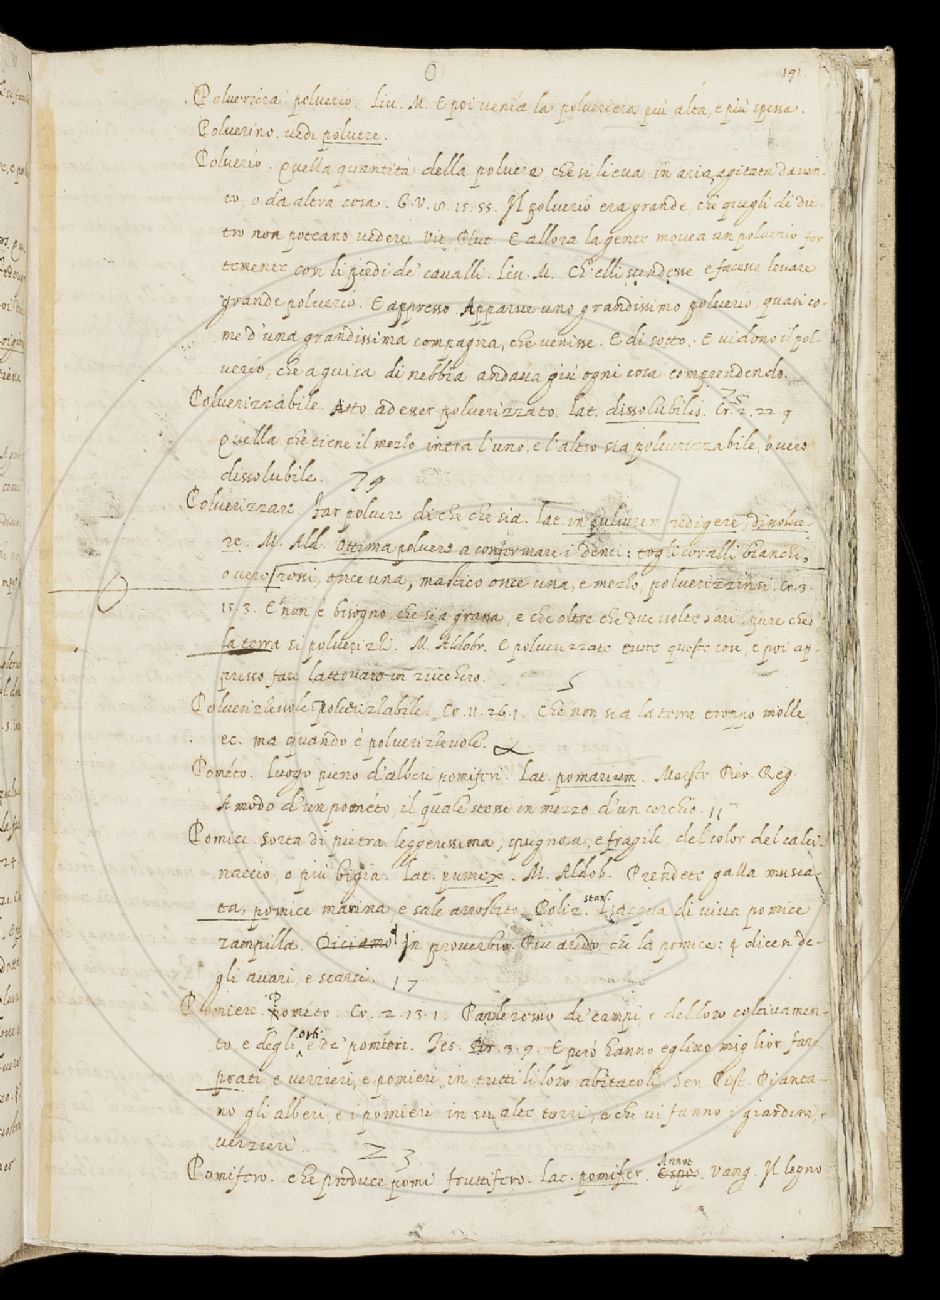 O 191.
Polveriera polverio. Liv. M. E poi venia la polveriera più alta, e più spessa.
Polverino. vedi polvere.
Polverio. Quella quantità della polvere che si lieva in aria, agitata da ven-
to, o da altra cosa. G. V. 8. 15. 55. Il polverio era grande, che quegli di den-
tro non poteano vedere. Vit. Plut. E allora la gente movea un polverio for
temente con li piedi de' cavalli. Liv. M. Ch' elli stendesse e facesse levare
grande polverio. E appresso Apparve uno grandissimo polverio, quasi co-
me d'una grandissima compagna, che venisse. E di sotto. E vidono il pol-
verio, che a guisa di nebbia andava giù ogni cosa comprendendo.
Polverizzabile. Atto ad esser polverizzato. Lat. dissolubilis. Cr. 2. 22. 9
Quella che tiene il mezlo intra l'uno, e l'altro sia polverizzabile, ovvero
dissolubile. 79
Polverizzare. Far polvere di che che sia. Lat. in pulverem redigere, dissolve-
re. M. Ald. Ottima polvere a confermare i denti: togli coralli bianchi,
ovvero rossi, once una, mastico once una, e mezlo, polverizzinsi. Cr. 3.
15. 3. E non è bisogno, che sia grassa, e che oltre che due volte s'ari, pure che
la terra si polverizzi. M. Aldobr. E polverizzate tutte queste cose, e poi ap-
presso fate lattovaro in zucchero.
Polverizlevole. polverizlabile. Cr. 11. 26. 1. Che non sia la terra troppo molle
ec. ma quando è polverizlevole.
Pométo. Luogo pieno d'alberi pomiferi. Lat. pomarium. Maestr Pier. Reg.
A modo d'un pométo, il quale stesse in mezzo d'un cerchio. 11
Pomice. Sorta di pietra leggerissima, spugnosa, e fragile, del color del calci-
naccio, o più bigia. Lat. pumex. M. Aldob. Prendete galla musca-
ta, pomice marina, e sale arrostito. Poliz. stan. L'acqua di viva pomice
zampilla. Diciamo In proverbio. Più arido che la pomice: q dicen de-
gli avari, e scarsi. 17
Pomiere. Pométo. Cr. 2. 13. 1. Parleremo de' campi e dell loro coltivamen-
to, e degli orti e de' pomieri. Tes. Br. 3. 9. E però hanno eglino miglior fare
prati, e verzieri, e pomieri, in tutti li loro abitacoli. Sen. Pist. Pianta-
no gli alberi, e i pomieri in su alte torri, e che vi fanno i giardini,
verzieri. 23
Pomifero. che produce pomi fruttifero. Lat. pomifer. Annot. Vang. Il legno